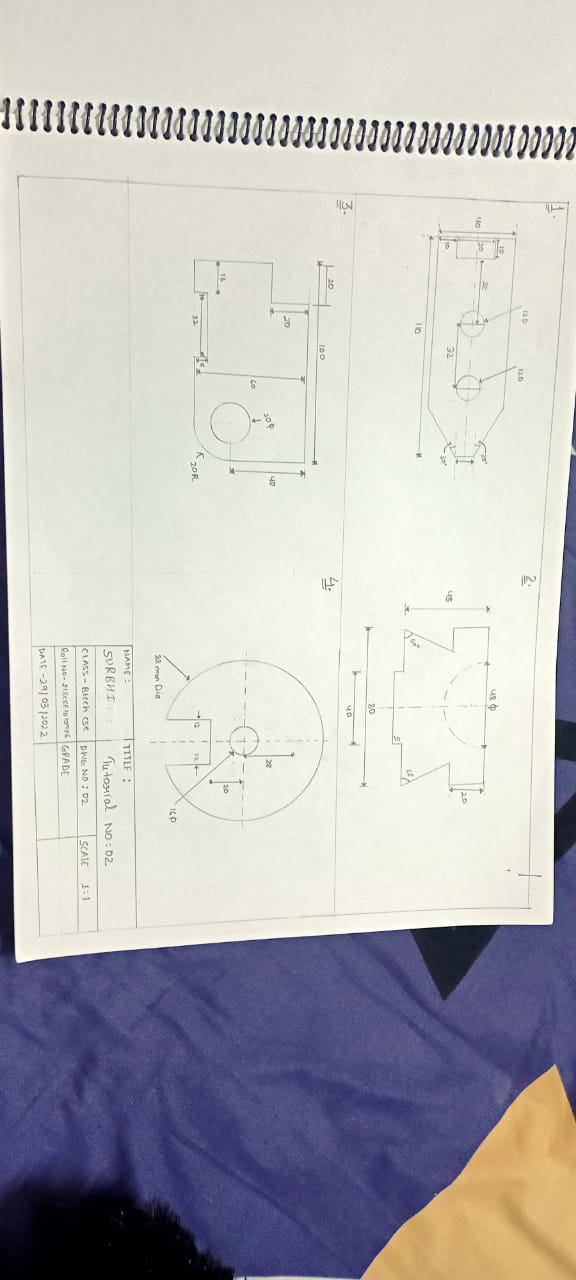 1.
12D
12D
10
40
20
32
30°
10
32
30°
110
2.
48 ϕ
20
48
60°
5
80
40
3.
20
100
20
60
40
20ϕ
16
32
20R
4.
28
20
12
12
16ϕ
mm Dia
NAME :
SURBHI
TITLE :
Tutorial NO:02
CLASS - Btech CSE
DWG NO : 02
SCALE 1:1
GRADE
DATE - 29/03/2022